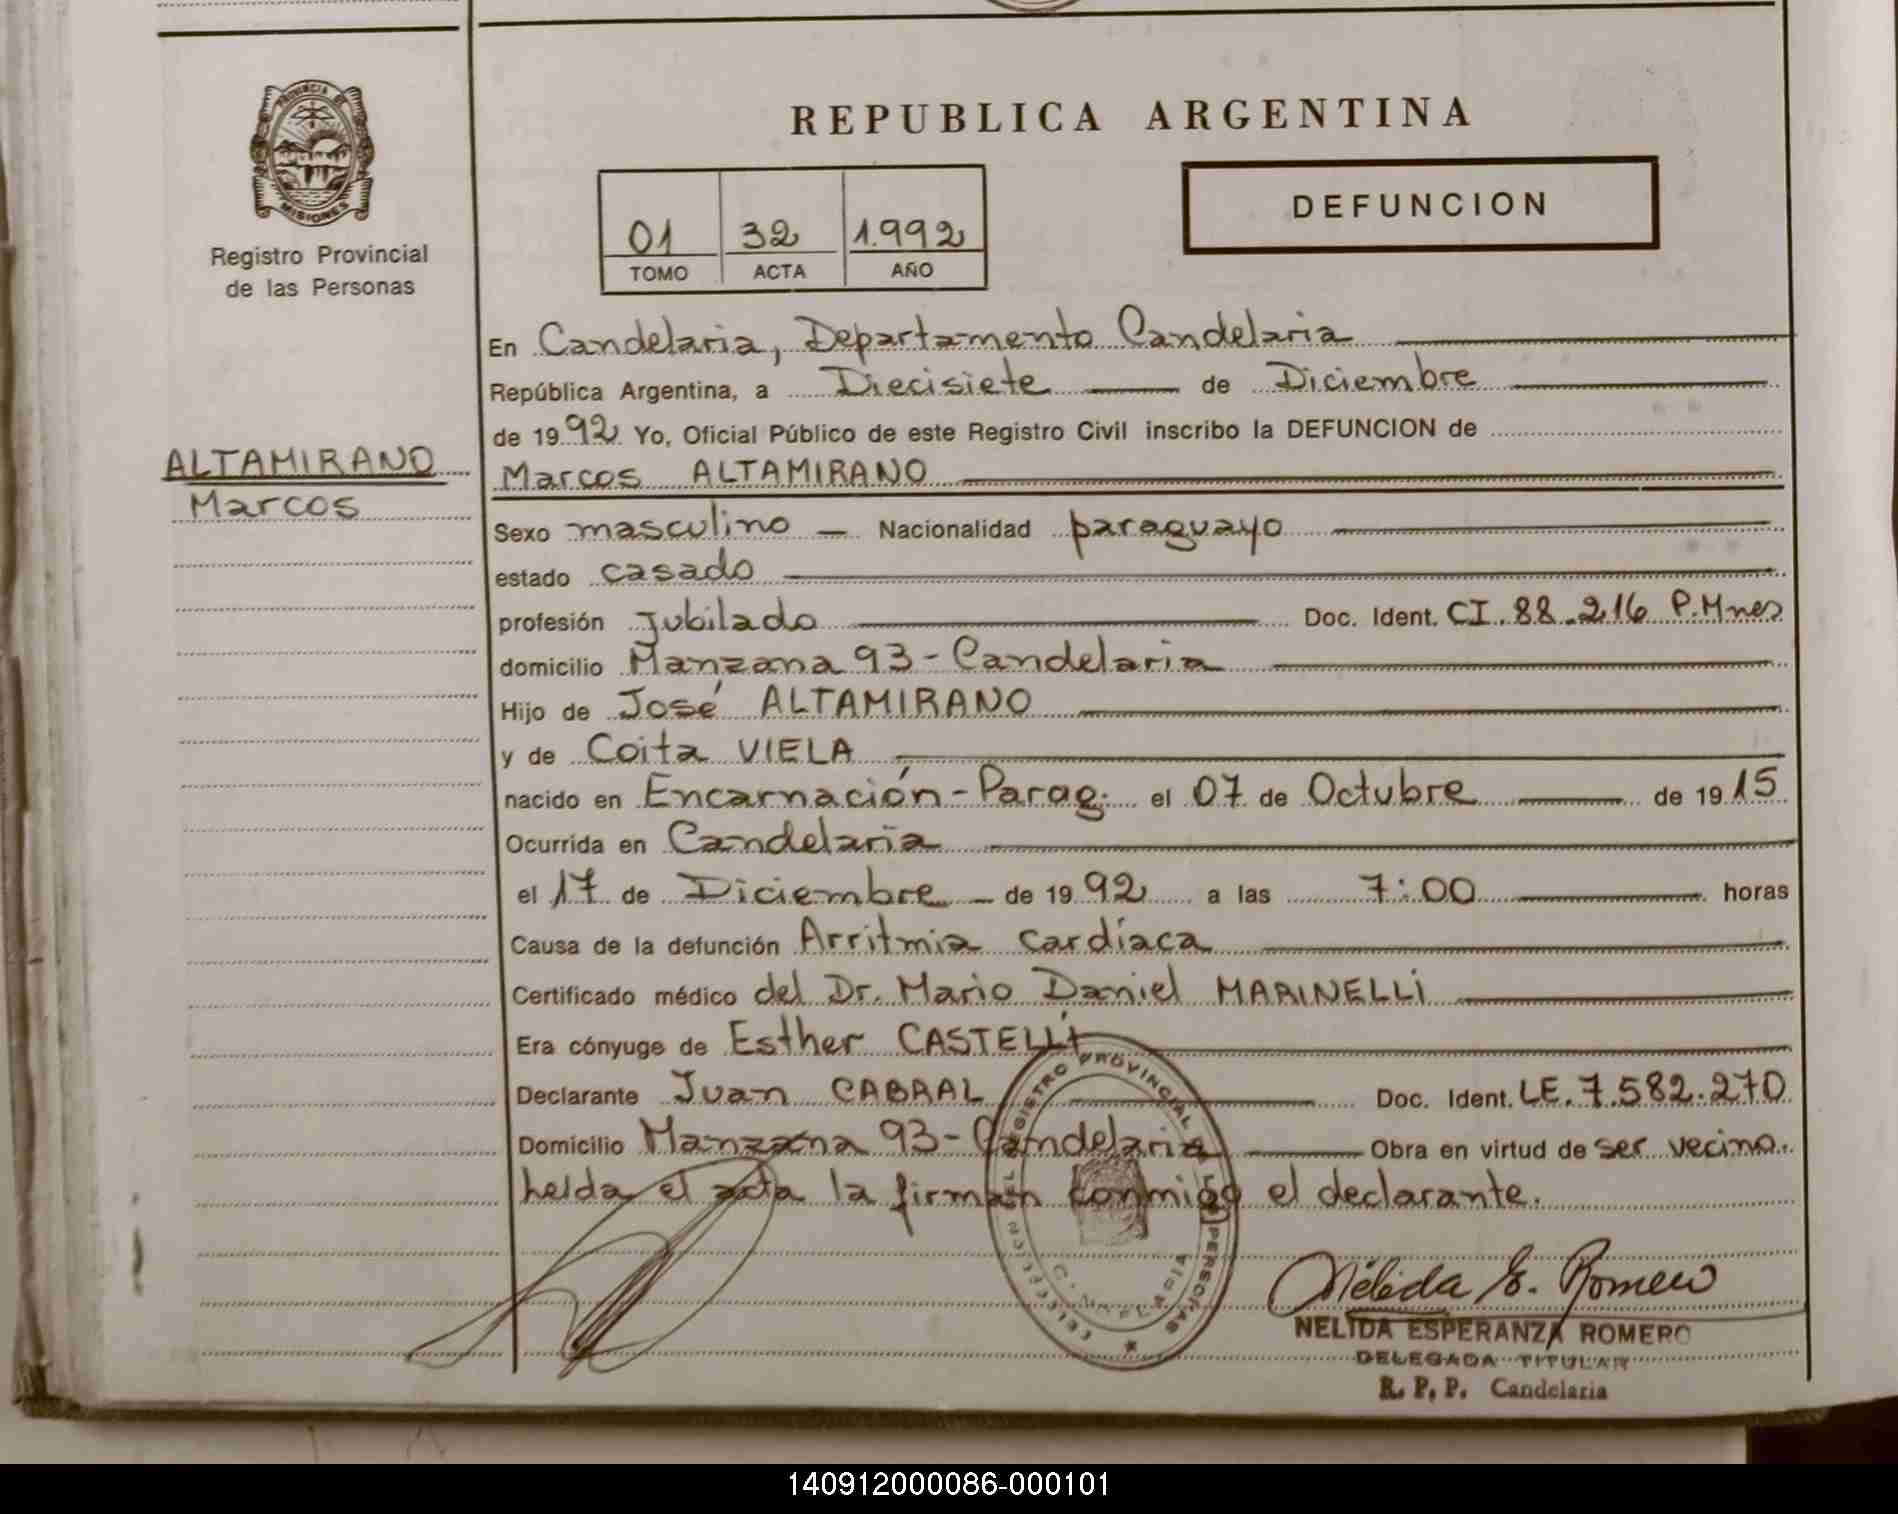 PROVINCIA DE
MISIONES
Registro Provincial
de las Personas
ALTAMIRANO
Marcos
REPUBLICA ARGENTINA
01 32 1.992
TOMO ACTA AÑO
DEFUNCION
En Candelaria, Departamento Candelaria
República Argentina, a Diecisiete de Diciembre
de 1992 Yo, Oficial Público de este Registro Civil inscribo la DEFUNCION de
Marcos ALTAMIRANO
Sexo masculino — Nacionalidad paraguayo
estado casado
profesión jubilado Doc. Ident. CI. 88.216 P.Mnes
domicilio Manzana 93 - Candelaria
Hijo de José ALTAMIRANO
y de Coita VIELA
nacido en Encarnación - Parag. el 07 de Octubre de 1915
Ocurrida en Candelaria
el 17 de Diciembre — de 1992 a las 7:00 horas
Causa de la defunción Arritmia cardíaca
Certificado médico del Dr. Mario Daniel MARINELLI
Era cónyuge de Esther CASTELLI
Declarante Juan CABRAL Doc. Ident. LE. 7.582.270
Domicilio Manzana 93 - Candelaria Obra en virtud de ser vecino.
heida el acta la firman conmigo el declarante.
REGISTRO PROVINCIAL PERSONAS
Nélida E. Romero
NELIDA ESPERANZA ROMERO
DELEGADA TITULAR
R. P. P. Candelaria
140912000086-000101